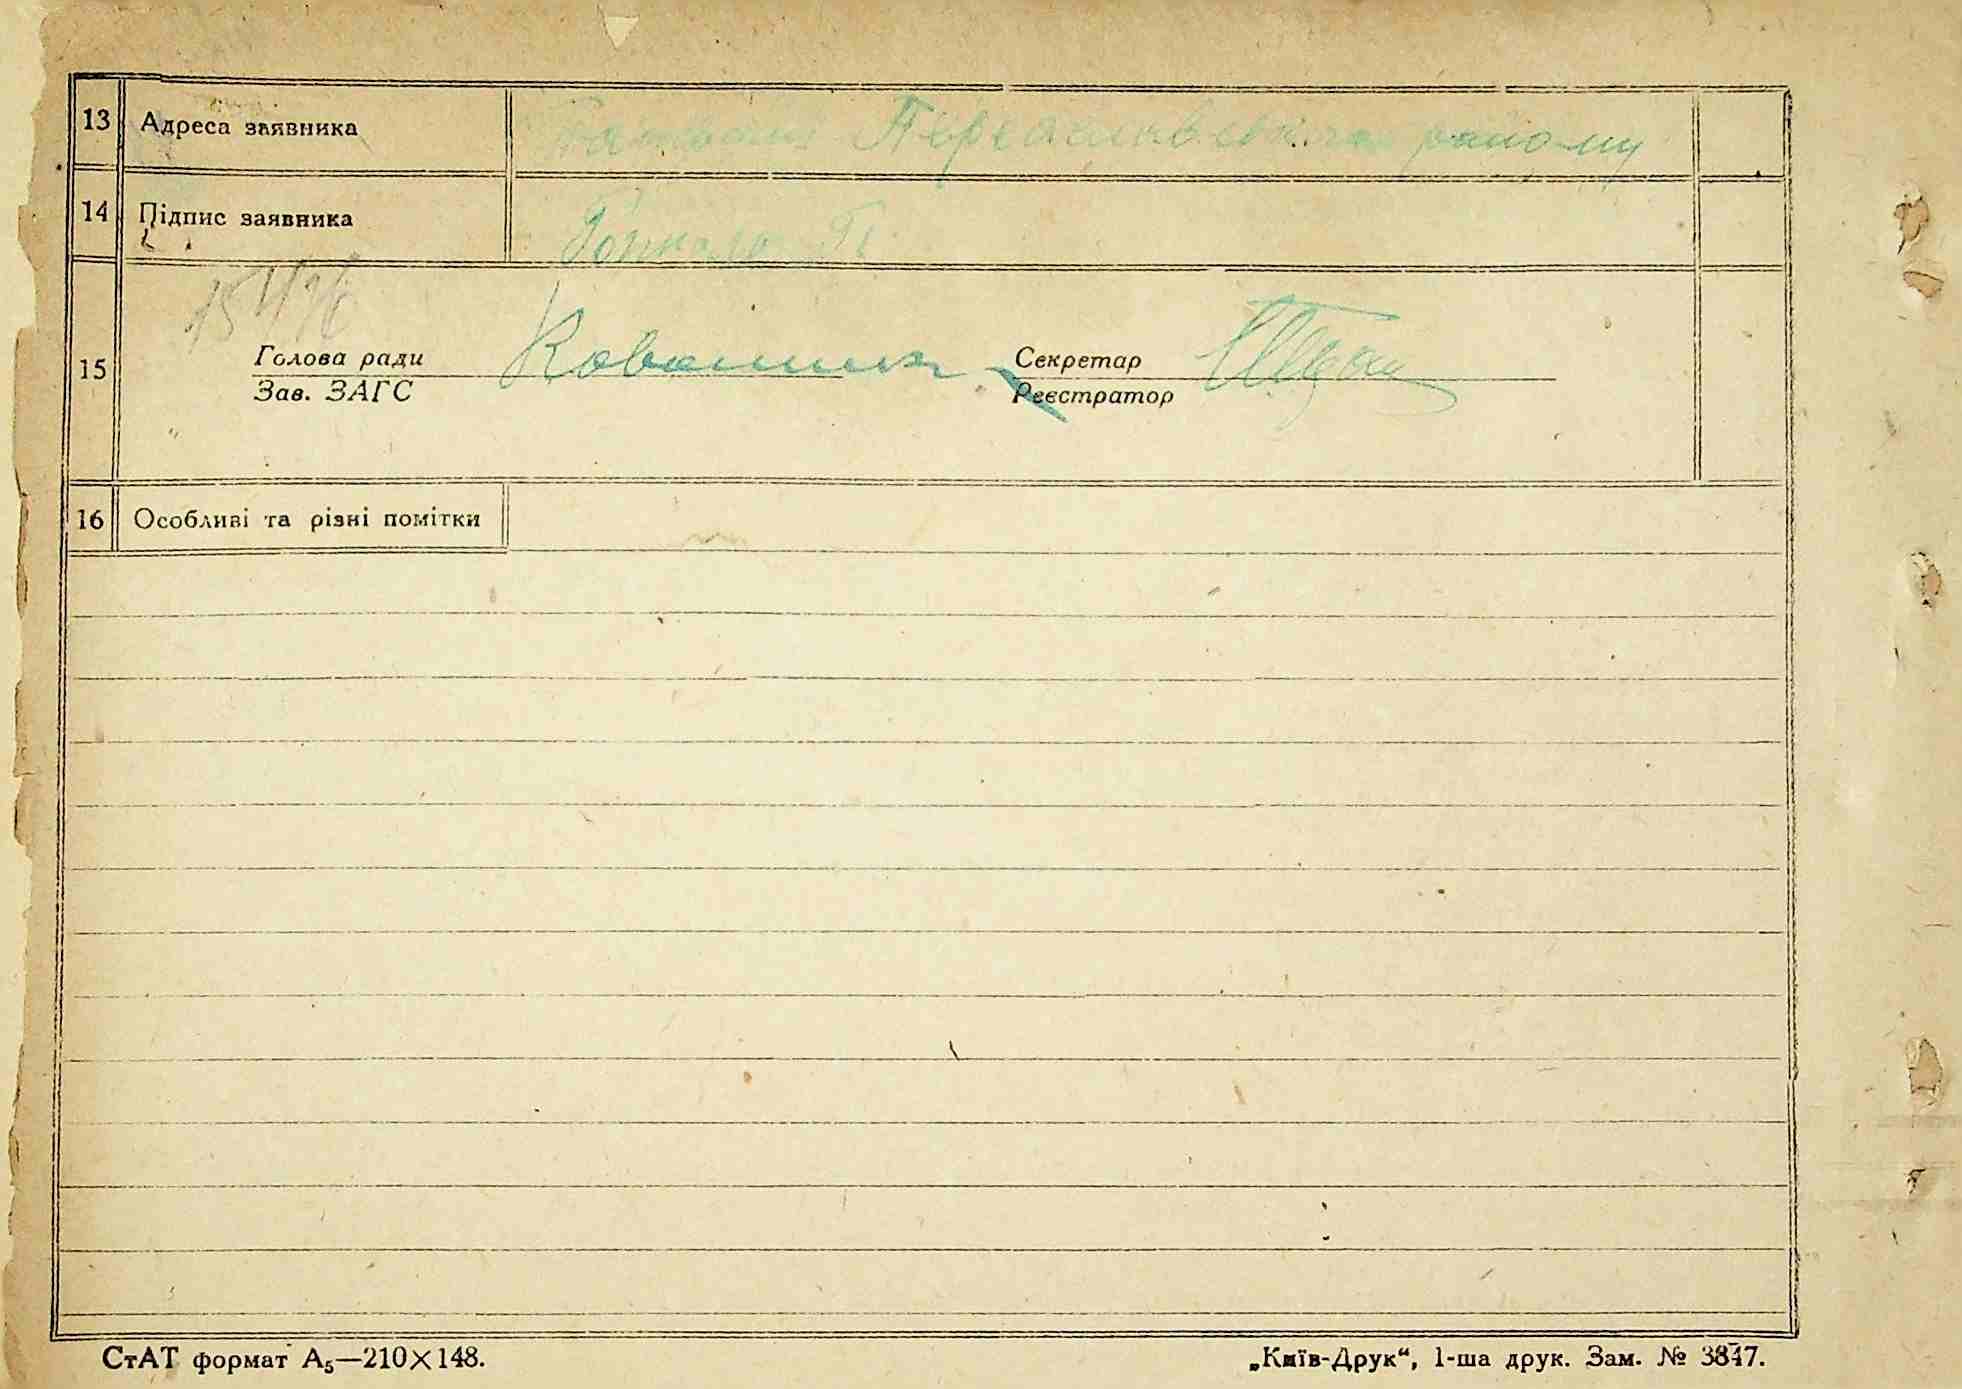 13 Адреса заявника Переяславського району
14 Підпис заявника
15
Голова ради Секретар
Зав. ЗАГС Реєстратор
16 Особливі та різні помітки
СтАТ формат А5—210×148. „Київ-Друк“, 1-ша друк. Зам. № 3847.